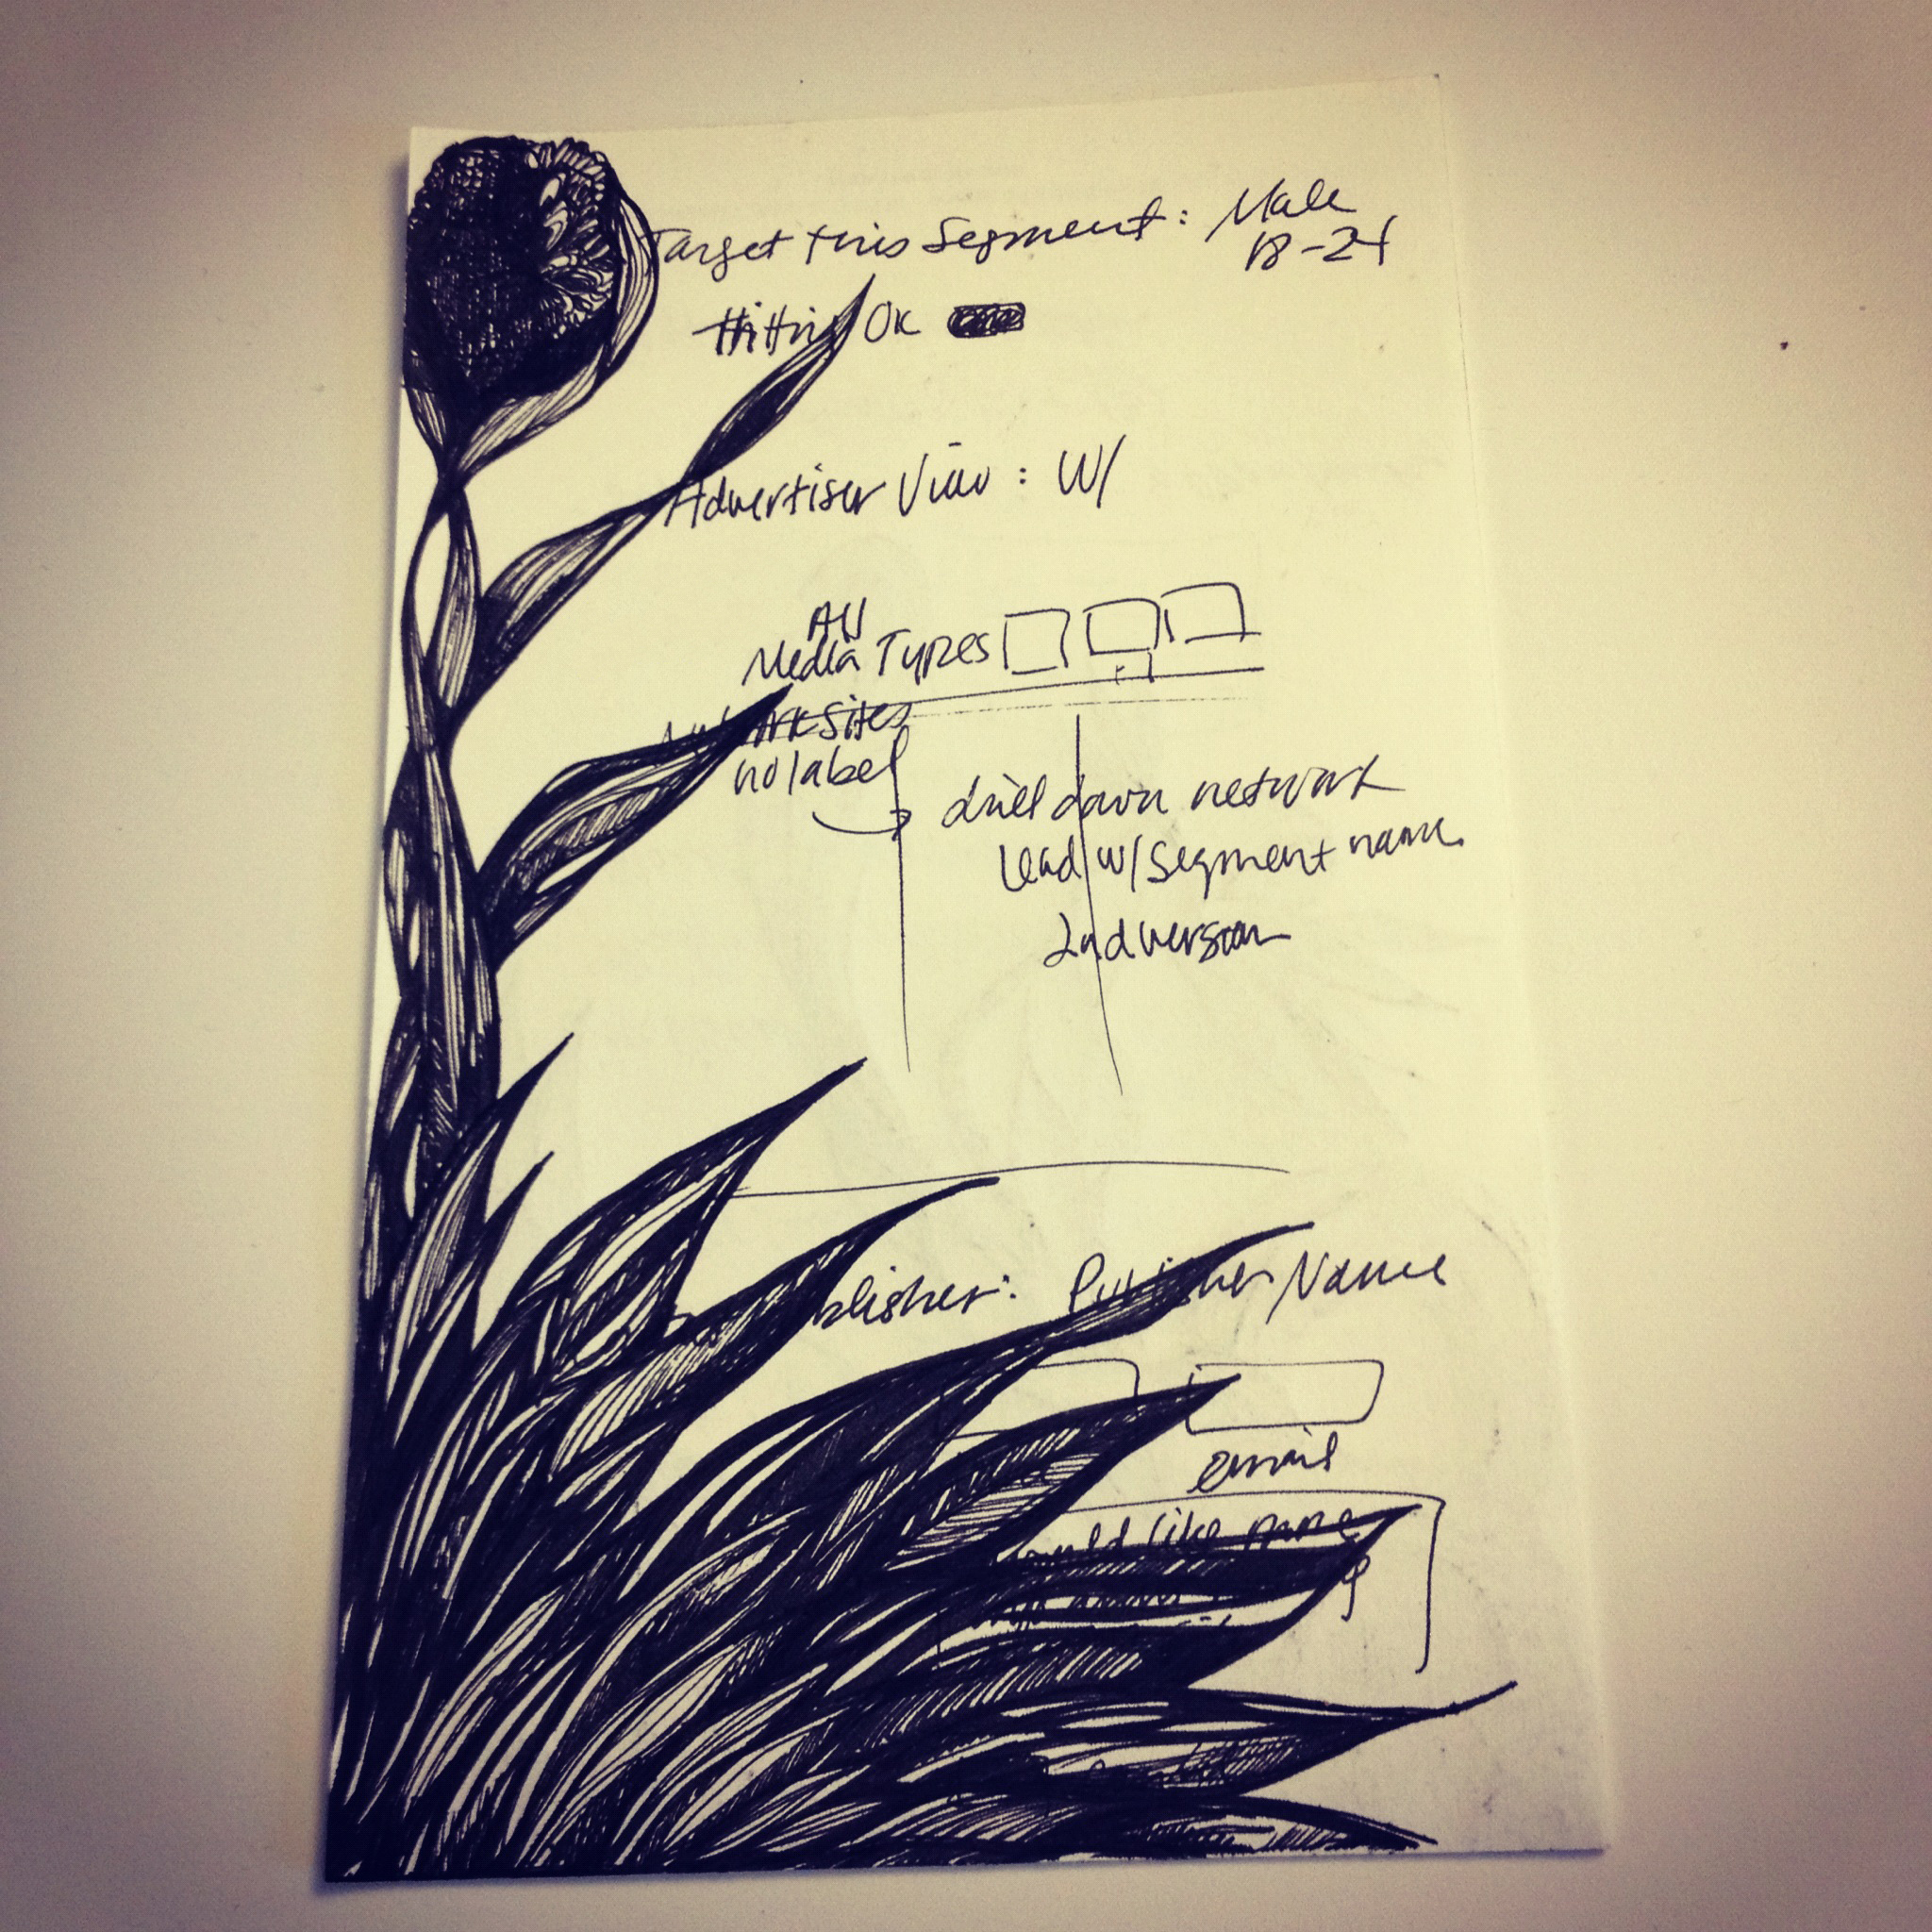 Target this Segment: Male
18-24
OK
Advertiser View: W/
All
Media Types
Sites
no label
drill down network
lead w/ segment name
2nd version
Publisher Name
email
like